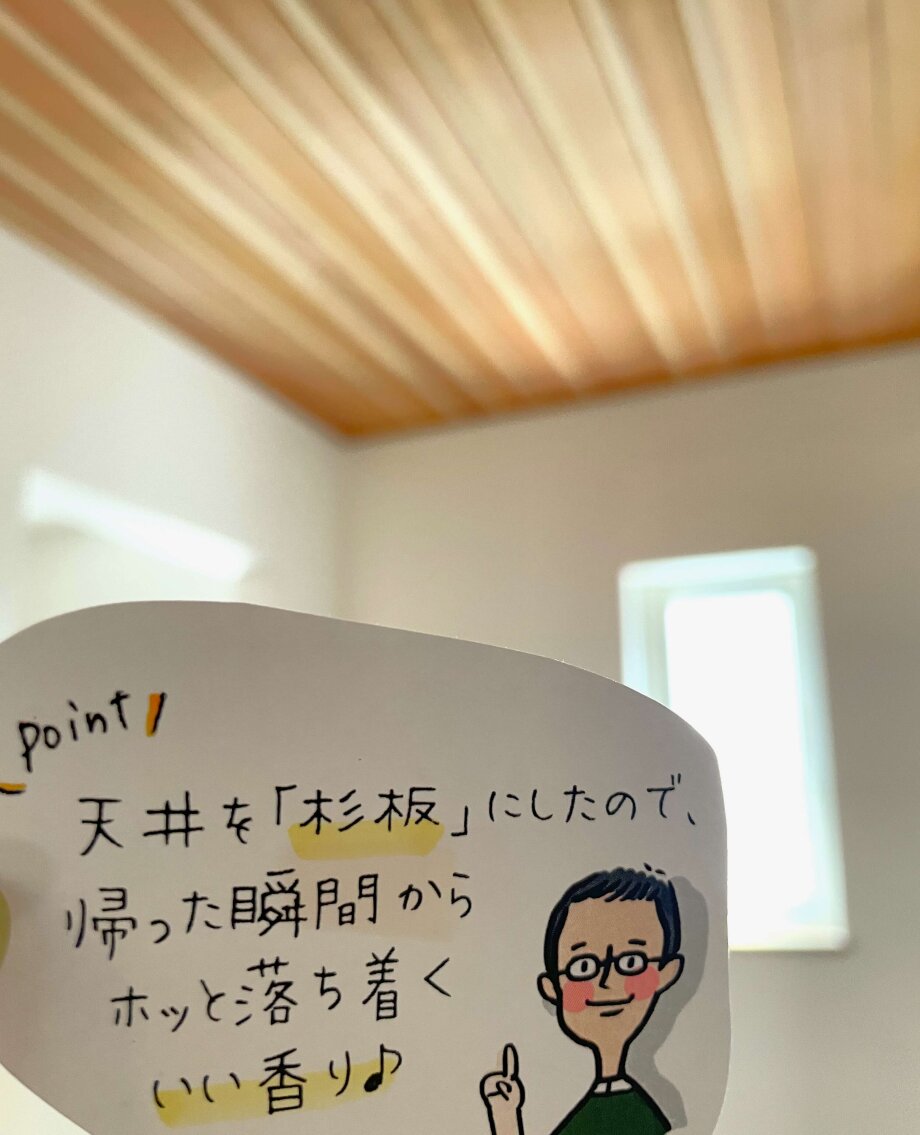 point!
天井を「杉板」にしたので、
帰った瞬間から
ホッと落ち着く
いい香り♪